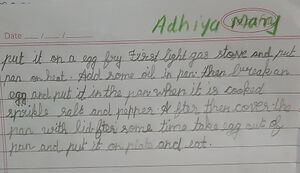 Adhiya Mam
Date __/__/__
put it on a egg fry First light gas stove and put
pan on heat. Add some oil in pan then bureak an
egg and put it in the pan when it is cooked
sprikle salt and pepper After then cover the
pan with lid after some time take egg out of
pan and put it on plate and eat.